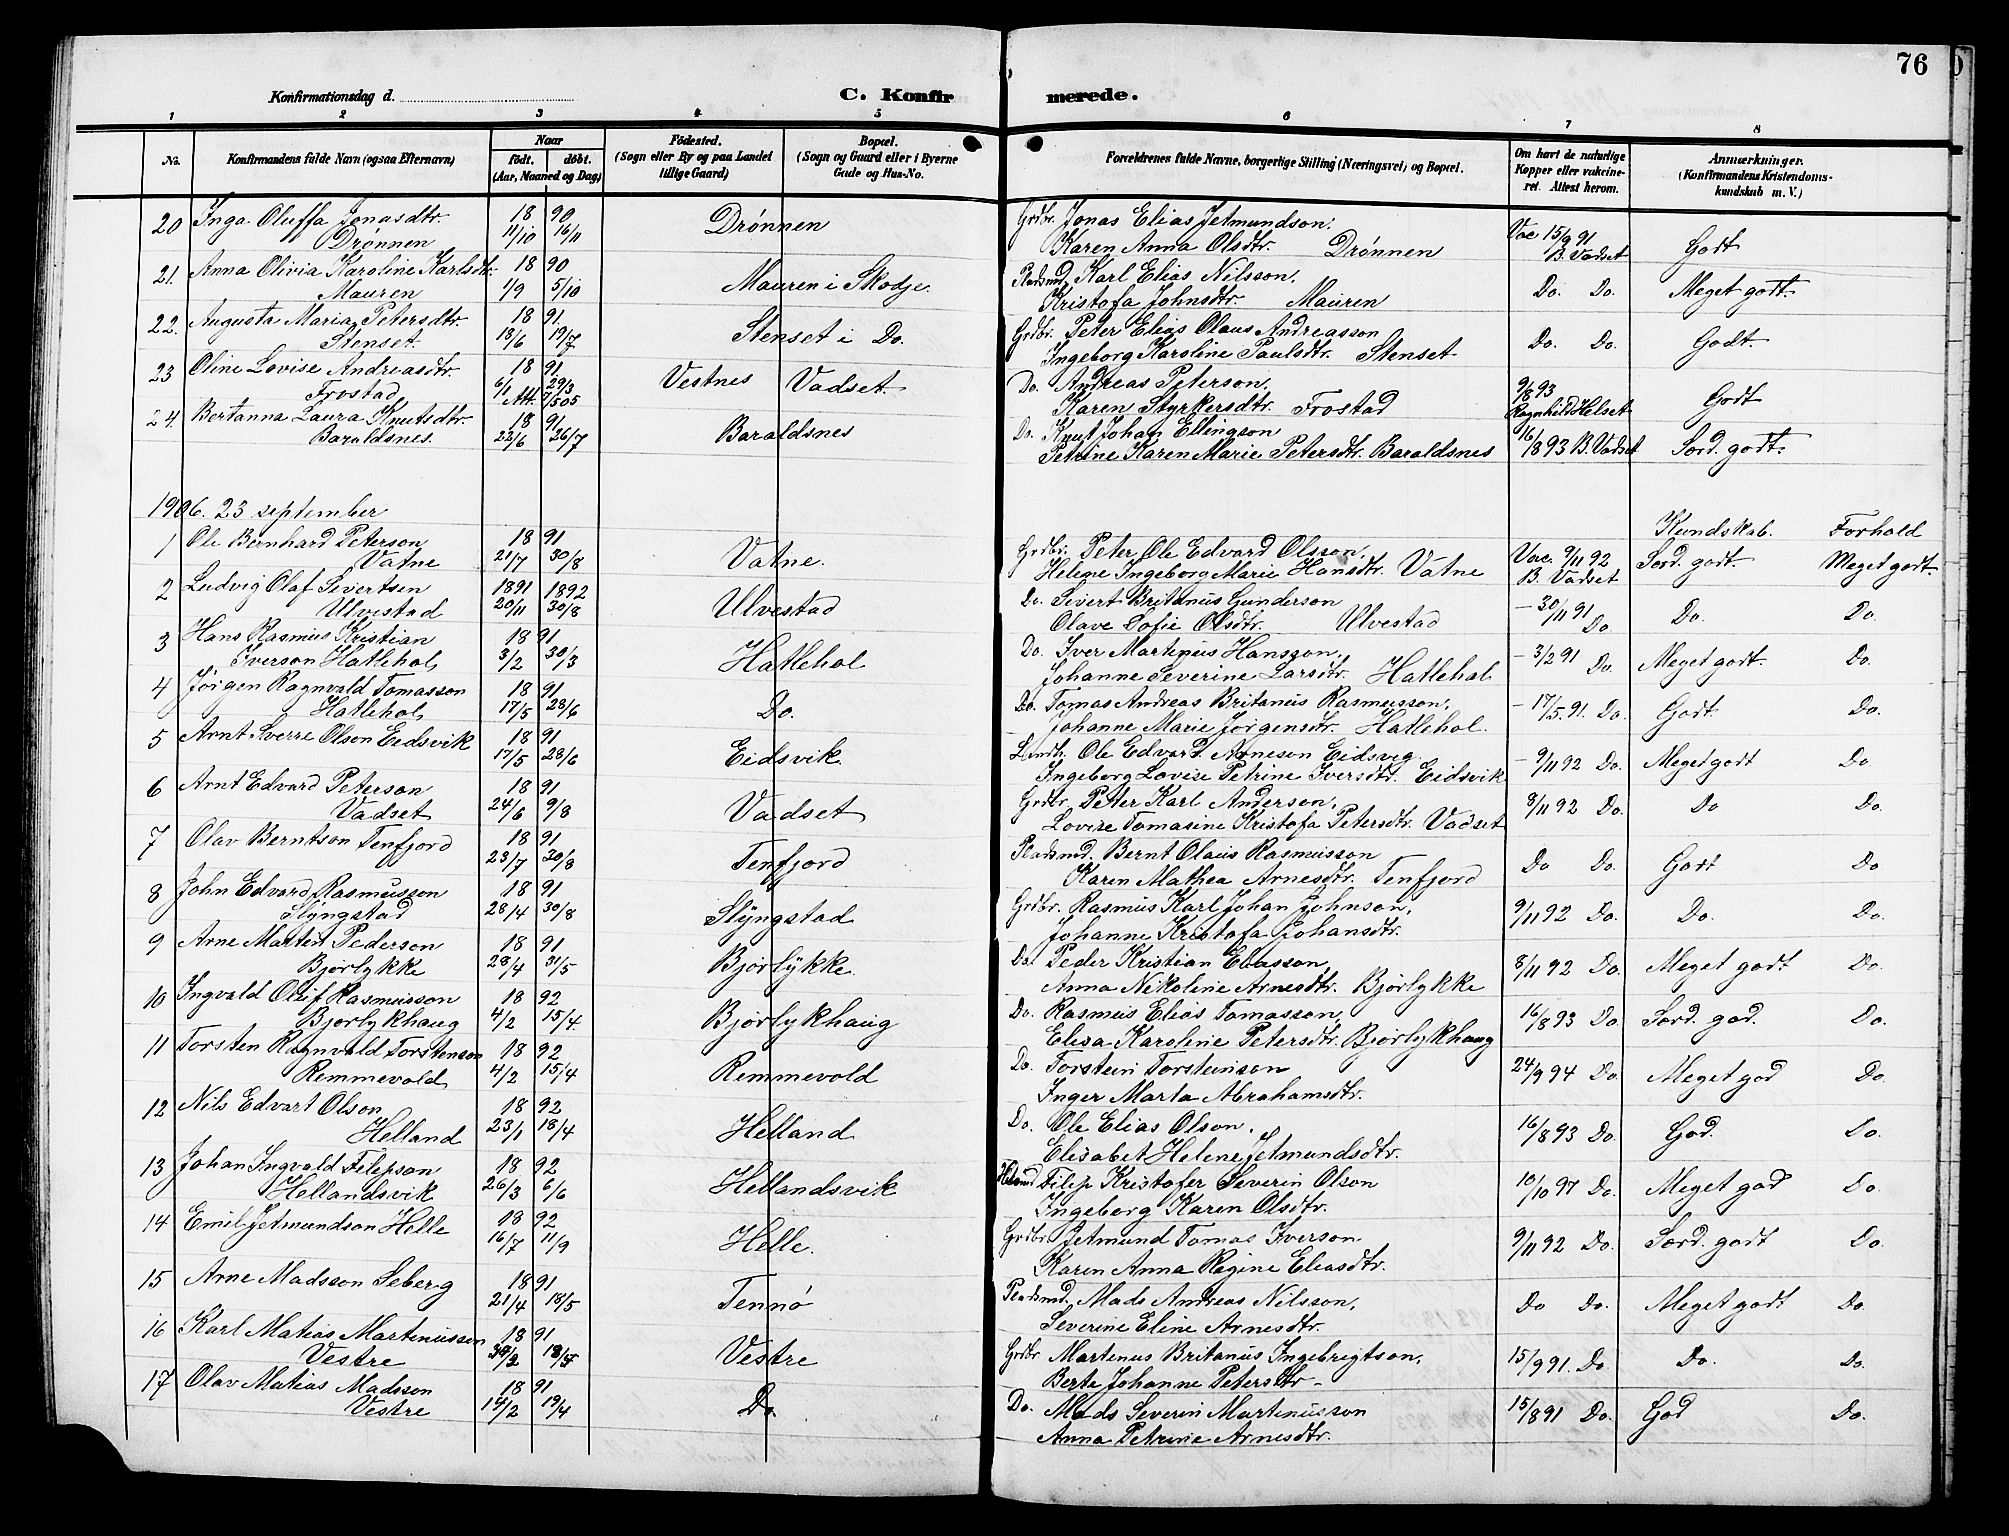 76
Konfirmationsdag d.
C. Konfirmerede.
1 2 3 4 5 6 7 8
No.
Konfirmandens fulde Navn (ogsaa Efternavn)
Naar
født. døbt.
(Aar, Maaned og Dag)
Fødested.
(Sogn eller By og paa Landet
tillige Gaard)
Bopæl.
(Sogn og Gaard eller i Byerne
Gade og Hus-No.
Forældrenes fulde Navne, borgerlige Stilling (Næringsvei) og Bopæl.
Om havt de naturlige
Kopper eller vakcine-
ret. Attest herom.
Anmærkninger.
(Konfirmandens Kristendoms-
kundskab m. V.)
20 Inga Oluffa Jonasdtr. 18 90 Drønnen Grdbr. Jonas Elias Jetmundson, Vac 15/9 91 Godt
Drønnen 11/10 16/11 Karen Anna Olsdtr. Drønnen B. Vadset
21. Anna Olivia Karoline Karlsdtr. 18 90 Mauren i Skodje. Pladsmd. Karl Elias Nilsson, Do. Do. Meget godt.
Mauren 1/9 5/10 Kristofa Johnsdtr. Mauren
22. Augusta Maria Petersdtr. 18 91. Stenset i Do. Grdbr. Peter Elias Olaus Andreasson Do. Do. Godt.
Stenset. 18/6 19/7 Ingeborg Karoline Paulsdtr. Stenset
23 Oline Lovise Andreasdtr. 18 91 Vestnes Vadset. Do. Andreas Peterson, 9/8 93 Godt
Frostad 6/1 29/3 Karen Styrkersdtr. Frostad Ragnhild Helset
Att. 7/5 05
24. Bertanna Laura Knutsdtr. 18 91 Baraldsnes Do. Knut Johan Ellingson 16/8 93 B. Vadset Særd. godt.
Baraldsnes. 22/6 26/7 Petrine Karen Marie Petersdtr. Baraldsnes
1906. 23 september
Kundskab. Forhold
1 Ole Bernhard Peterson 18 91 Vatne. Grdbr. Peter Ole Edvard Olsson, Vac. 9/11 92 Særd. godt. Meget godt.
Vatne 21/7 30/8 Helene Ingeborg Marie Hansdtr. Vatne B. Vadset
2 Ludvig Olaf Sivertsen 1891 1892 Ulvestad Do. Sivert Britanus Gunderson – 30/11 91 Do Do. Do.
Ulvestad 20/11 30/8 Olave Sofie Olsdtr. Ulvestad
3 Hans Rasmus Kristian 18 91 Hatlehol Do. Iver Martinus Hansson, – 3/2 91 Do Meget godt. Do.
Iverson Hatlehol 3/2 30/3 Johanne Severine Larsdtr. Hatlehol
4 Jørgen Ragnvald Tomasson 18 91 Do. Do. Tomas Andreas Britanus Rasmusson, – 17/5. 91. Do. Godt. Do.
Hatlehol 17/5 28/6 Johanne Marie Jørgensdtr. Hatlehol.
5 Arnt Sverre Olson Eidsvik 18 91 Eidsvik. Landh. Ole Edvard Arneson Eidsvig – 9/11 92 Do. Meget godt Do
17/5 28/6 Ingeborg Lovise Petrine Iversdtr. Eidsvik
6 Arnt Edvard Peterson 18 91 Vadset Grdbr. Peter Karl Anderson, 8/11 92 Do. Do Do.
Vadset 24/6 9/8 Lovise Tomasine Kristofa Petersdtr. Vadset
7 Olav Berntson Tenfjord 18 91 Tenfjord Pladsmd. Bernt Olaus Rasmusson Do Do. Godt Do
23/7 30/8 Karen Mathea Arnesdtr. Tenfjord
8 John Edvard Rasmusson 18 91 Slyngstad Grdbr. Rasmus Karl Johan Johnson, 9/11 92 Do. Do. Do.
Slyngstad 28/4 30/8 Johanne Kristofa Johansdtr.
9 Arne Martin Pederson 18 91 Bjørlykke. Do. Peder Kristian Eliasson, 8/11 92 Do. Meget godt Do.
Bjørlykke 28/4 31/5 Anna Nikoline Arnesdtr. Bjørlykke
10 Ingvald Oluf Rasmusson 18 92 Bjørlykhaug Do. Rasmus Elias Tomasson, 16/8 93 Do Særd. god. Do.
Bjørlykhaug 4/2 15/4 Elisa Karoline Petersdtr. Bjørlykhaug
11 Torsten Ragnvald Torstenson 18 92 Remmevold Do. Torstein Torsteinson 24/9 94 Do. Meget god Do.
Remmevold 4/2 15/4 Inger Marta Abrahamsdtr.
12 Nils Edvart Olson 18 92 Helland Do. Ole Elias Olson, 16/8 93 Do. God. Do.
Helland 23/1 18/4 Elisabet Helene Jetmundsdtr.
13 Johan Ingvald Filipson 18 92 Hellandsvik Filip Kristofer Severin Olson 10/10 97 Do. Meget god Do.
Hellandsvik 26/3 6/6 Ingeborg Karen Olsdtr.
14 Emil Jetmundson Helle 18 92 Helle. Grdbr. Jetmund Tomas Iverson 9/11 92 Do. Særd. godt Do.
16/7 11/9 Karen Anna Regine Eliasdtr.
15 Arne Madsson Seberg 18 91 Tennø Pladsmd. Mads Andreas Nilsson, Do Do. Meget godt Do.
21/4 18/5 Severine Eline Arnesdtr.
16 Karl Matias Martinusson 18 91 Vestre Grdbr. Martenus Britanus Ingebrigtson, 15/9 91. Do. Do. Do.
Vestre Berte Johanne Petersdtr.
17 Olav Matias Madsson 18 91 Do. Do. Mads Severin Martinusson 15/8 91 Do. God Do.
Vestre 14/2 19/4 Anna Petrine Arnesdtr.